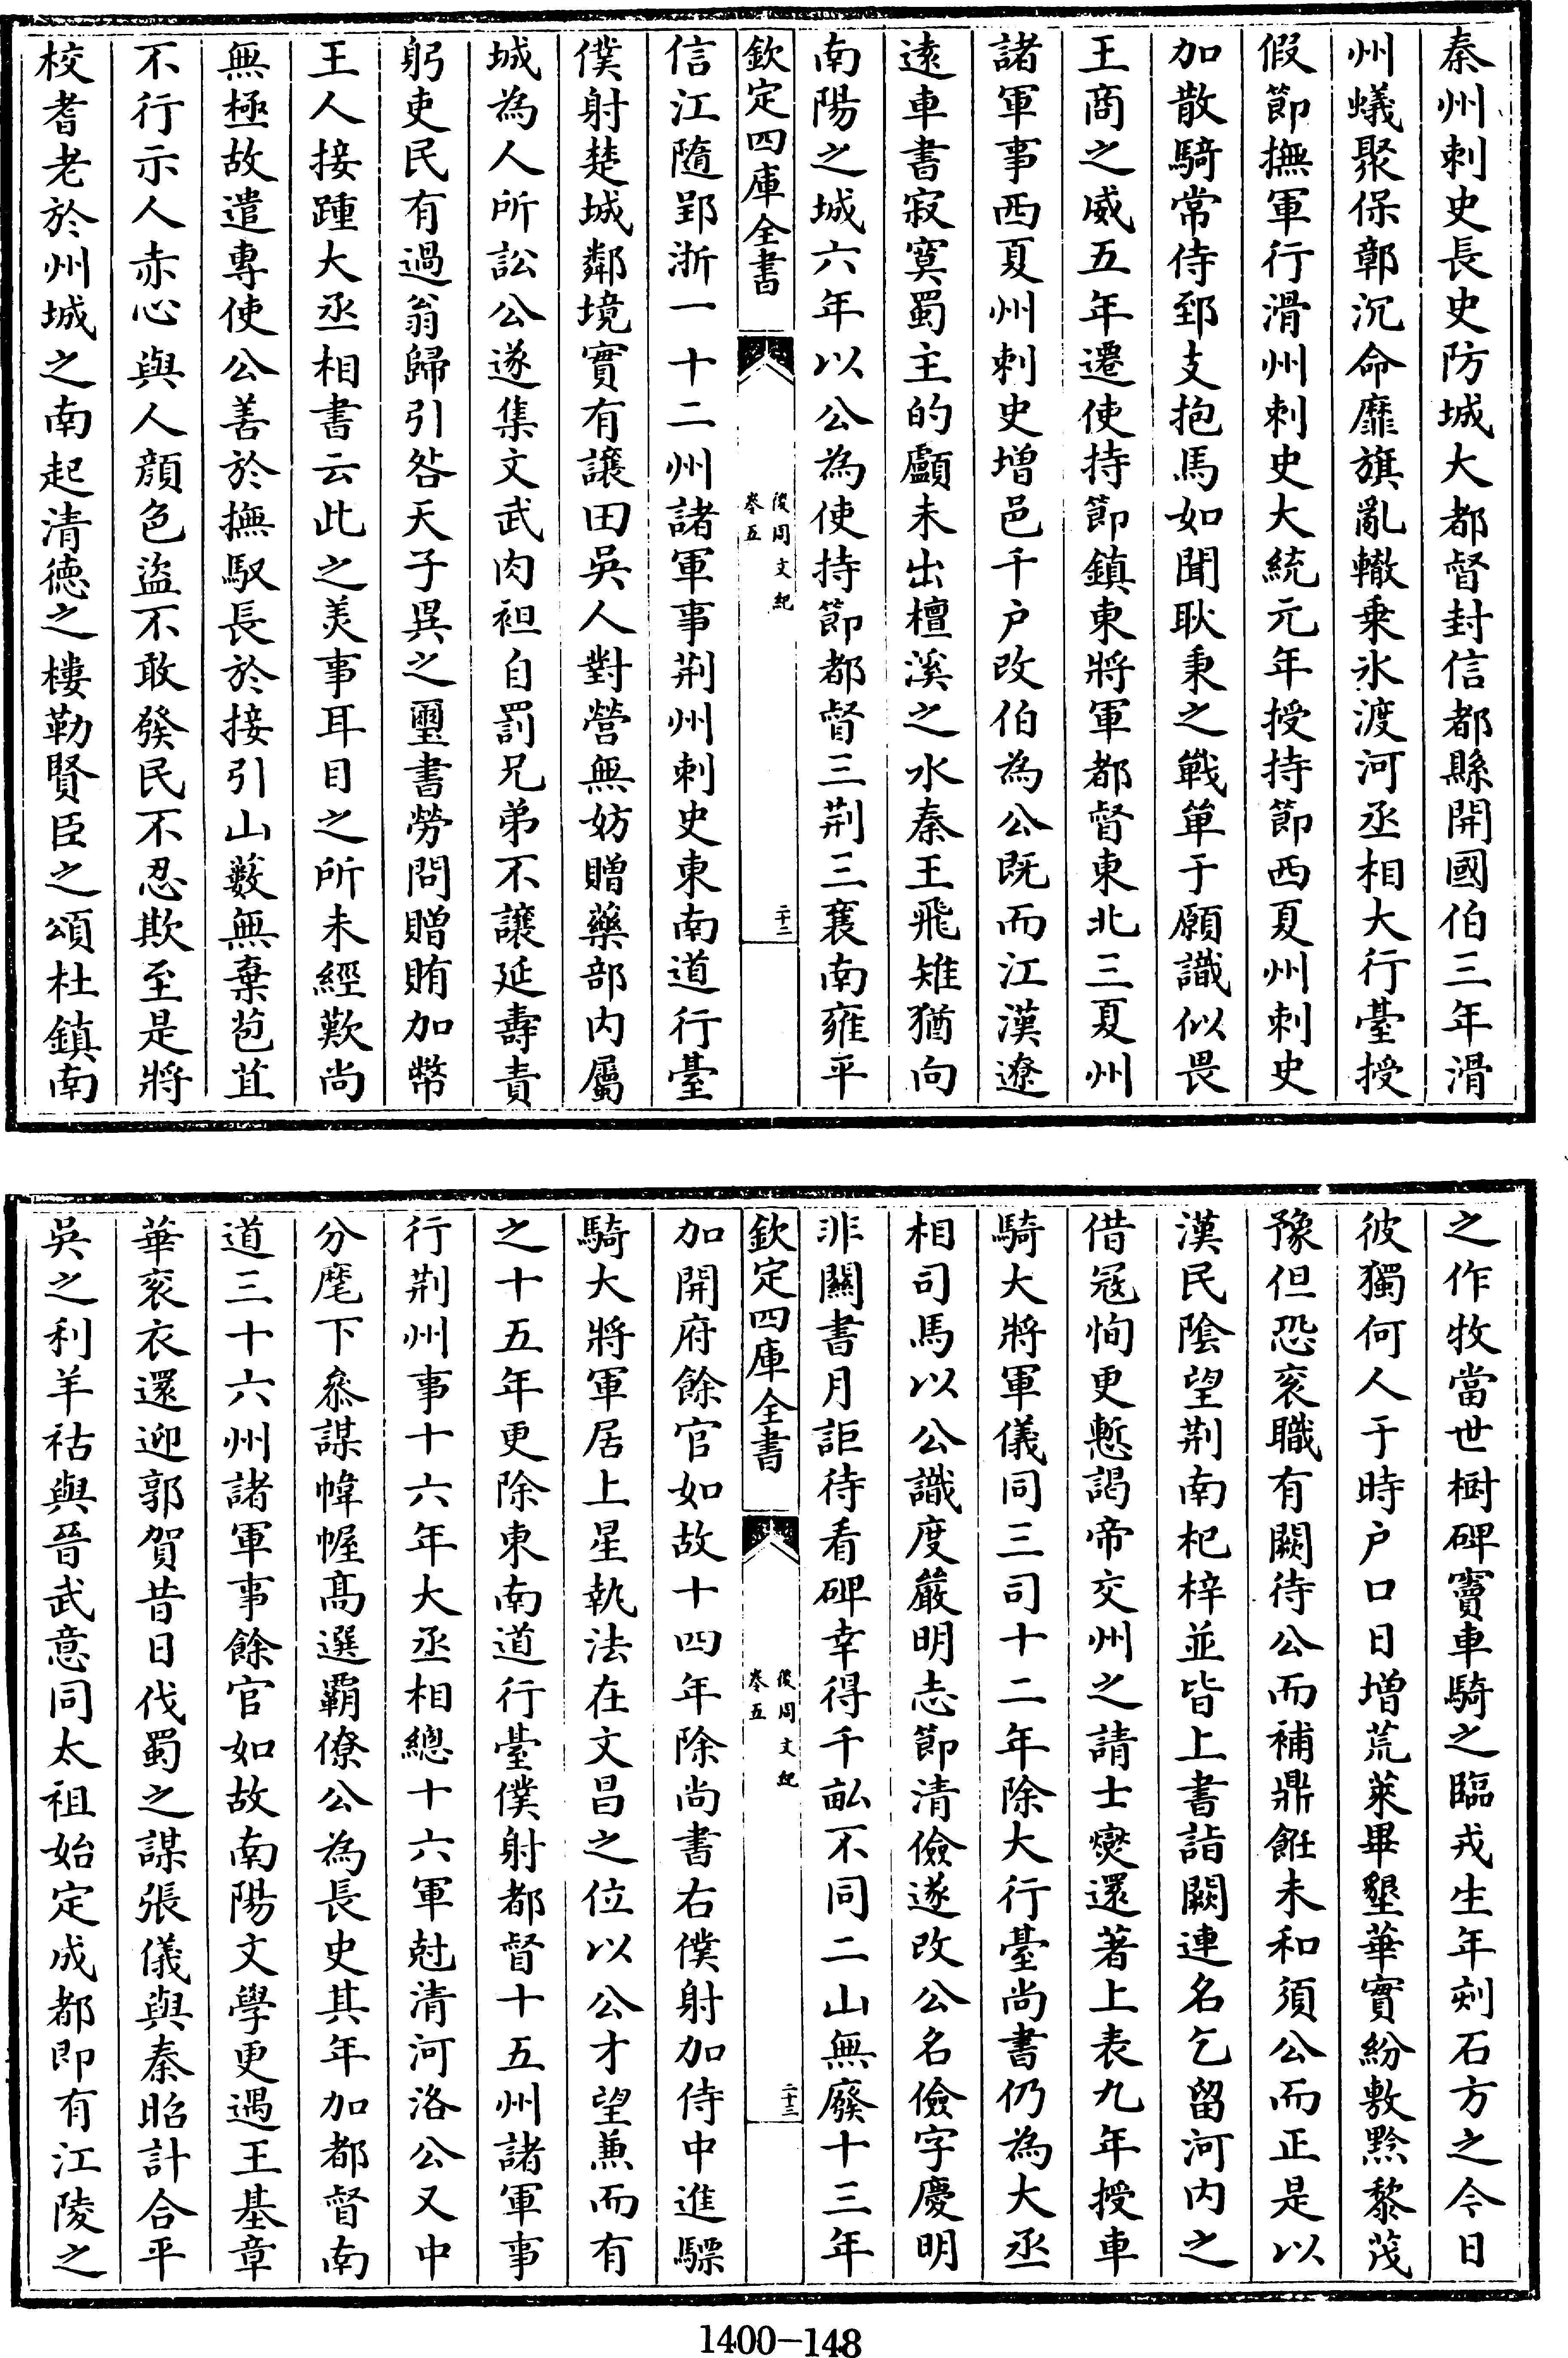 秦州刺史長史防城大都督封信都縣開國伯三年滑
州蟻聚保鄣沉命靡旗亂轍乗氷渡河丞相大行臺授
假節撫軍行滑州刺史大統元年授持節西夏州刺史
加散騎常侍郅支抱馬如聞耿秉之戰單于願識似畏
王商之威五年遷使持節鎮東將軍都督東北三夏州
諸軍事西夏州刺史增邑千户改伯為公既而江漢遼
逺車書寂寞蜀主的顱未出檀溪之水秦王飛雉猶向
南陽之城六年以公為使持節都督三荆三襄南雍平
欽定四庫全書
後周文紀
卷五
二十二
信江隨郢淅一十二州諸軍事荆州刺史東南道行臺
僕射楚城鄰境實有讓田吳人對營無妨贈藥部内屬
城為人所訟公遂集文武肉袒自罰兄弟不讓延壽責
躬吏民有過翁歸引咎天子異之璽書勞問贈賄加幣
王人接踵大丞相書云此之羙事耳目之所未經歎尚
無極故遣專使公善於撫馭長於接引山藪無棄苞苴
不行示人赤心與人顔色盜不敢發民不忍欺至是將
校耆老於州城之南起清德之樓勒賢臣之頌杜鎮南
之作牧當世樹碑竇車騎之臨戎生年刻石方之今日
彼獨何人于時户口日增荒萊畢墾華實紛敷黔黎茂
豫但恐衮職有闕待公而補鼎飪未和須公而正是以
漢民陰望荆南杞梓並皆上書詣闕連名乞留河内之
借冦恂更慙謁帝交州之請士燮還著上表九年授車
騎大將軍儀同三司十二年除大行臺尚書仍為大丞
相司馬以公識度嚴明志節清儉遂改公名儉字慶明
非關書月詎待看碑幸得千畝不同二山無廢十三年
欽定四庫全書
後周文紀
卷五
二十三
加開府餘官如故十四年除尚書右僕射加侍中進驃
騎大將軍居上星執法在文昌之位以公才望兼而有
之十五年更除東南道行臺僕射都督十五州諸軍事
行荆州事十六年大丞相總十六軍尅清河洛公又中
分麾下叅謀幃幄髙選霸僚公為長史其年加都督南
道三十六州諸軍事餘官如故南陽文學更遇王基章
華衮衣還迎郭賀昔日伐蜀之謀張儀與秦昭計合平
吳之利羊祜與晉武意同太祖始定成都即有江陵之
1400-148